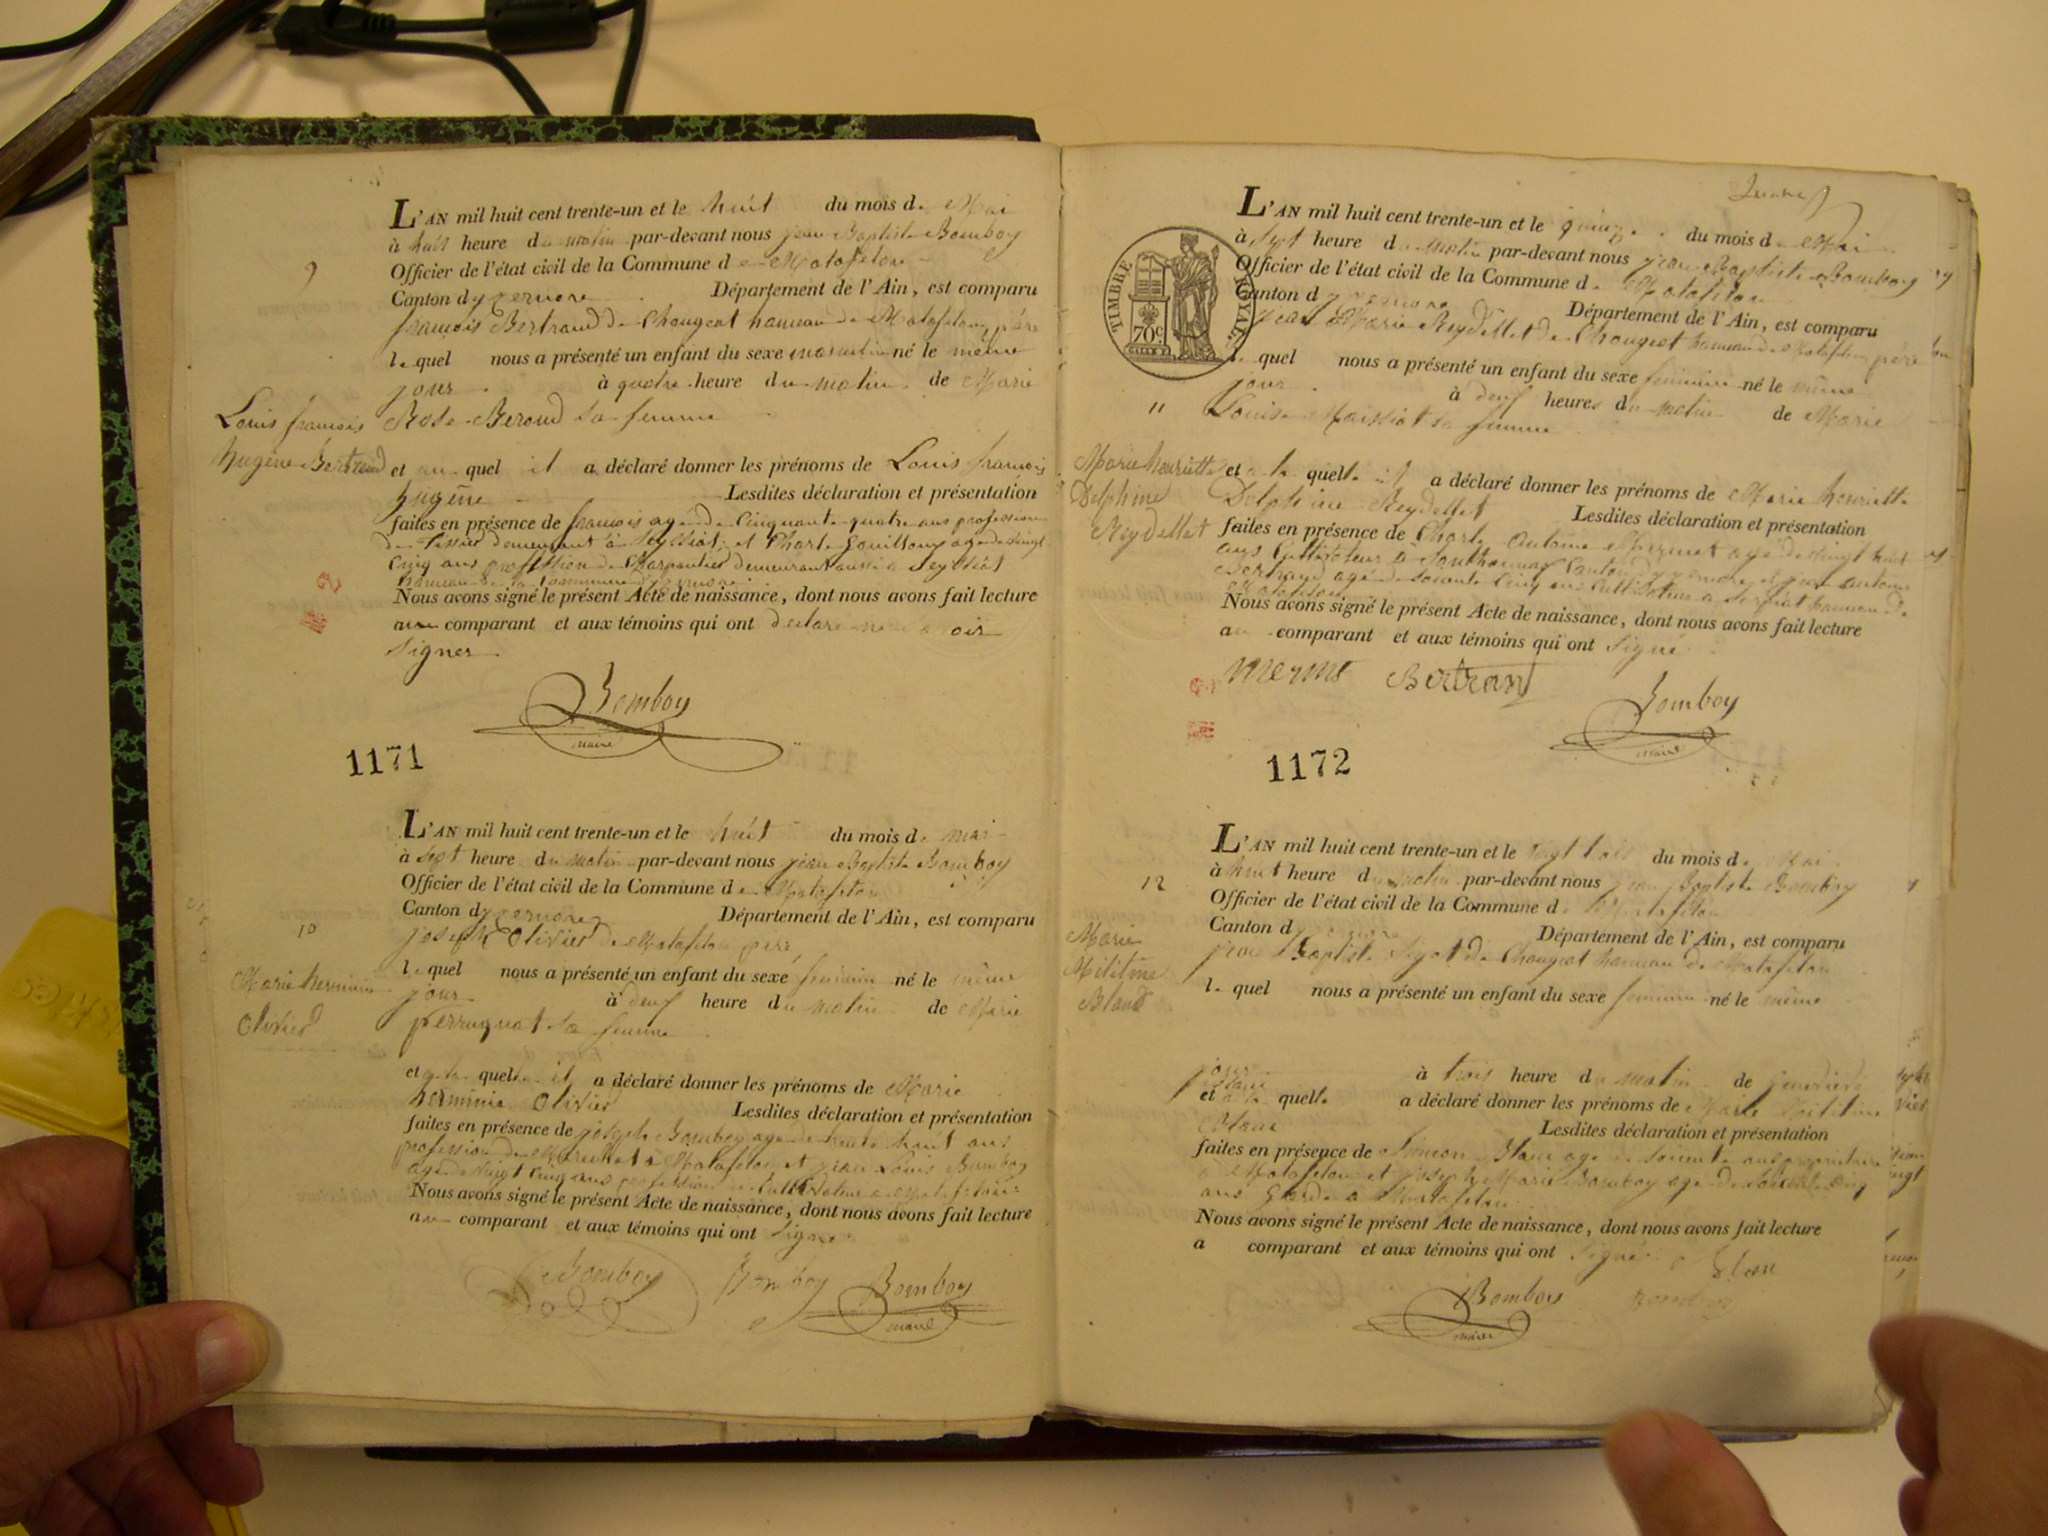 L'AN mil huit cent trente-un et le huit du mois de Mai
à huit heure du matin par-devant nous jean Baptiste Bomboy
Officier de l'état civil de la Commune de Matafelon
Canton d'yzernore Département de l'Ain, est comparu
françois Bertrand de Chougeat hameau de Matafelon père
lequel nous a présenté un enfant du sexe masculin né le même
jour à quatre heure du matin de Marie
Rose Beroud sa femme
9
Louis françois
hugène Bertrand
et au quel il a déclaré donner les prénoms de Louis françois
hugène Lesdites déclaration et présentation
faites en présence de françois agé de Cinquante quatre ans profession
de demeurant à et Charle Gouilloux agé de vingt
Cinq ans profession de Charpentier demeurant aussi a
hameau de la Commune d'yzernore
Nous avons signé le présent Acte de naissance, dont nous avons fait lecture
au comparant et aux témoins qui ont déclaré ne savoir
signer
Bomboy
maire
1171
L'AN mil huit cent trente-un et le huit du mois de mai
à sept heure du matin par-devant nous jean Baptiste Bomboy
Officier de l'état civil de la Commune de Matafelon
Canton d'yzernore Département de l'Ain, est comparu
joseph Olivier de Matafelon père
10
Marie herminie
Olivier
lequel nous a présenté un enfant du sexe feminin né le même
jour à deux heure du matin de Marie
perruquet sa femme
et a la quelle il a déclaré donner les prénoms de Marie
herminie Olivier Lesdites déclaration et présentation
faites en présence de joseph Bomboy agé de trente huit ans
profession de a Matafelon et jean Louis Bomboy
agé de vingt Cinq ans profession de Cultivateur a Matafelon
Nous avons signé le présent Acte de naissance, dont nous avons fait lecture
au comparant et aux témoins qui ont signé
Bomboy Bomboy Bomboy
maire
TIMBRE ROYAL
70c
L'AN mil huit cent trente-un et le quinze du mois de Mai
à sept heure du matin par-devant nous jean Baptiste Bomboy
Officier de l'état civil de la Commune de Matafelon
Canton d'yzernore Département de l'Ain, est comparu
jean Marie Reydellet de Chougeat hameau de Matafelon père
lequel nous a présenté un enfant du sexe feminin né le même
jour à deux heures du matin de Marie
11
Louise Maissiat sa femme
Marie henriette
Delphine
Reydellet
et a la quelle il a déclaré donner les prénoms de Marie henriette
Delphine Reydellet Lesdites déclaration et présentation
faites en présence de Charle Antoine Mermet agé de vingt huit
ans Cultivateur a Sonthonnax Canton d'yzernore et jean antoine
Bertrand agé de soixante Cinq ans Cultivateur a hameau de
Matafelon
Nous avons signé le présent Acte de naissance, dont nous avons fait lecture
au comparant et aux témoins qui ont signé
Mermet Bertrand
Bomboy
maire
1172
L'AN mil huit cent trente-un et le vingt trois du mois de Mai
à huit heure du matin par-devant nous jean Baptiste Bomboy
12
Officier de l'état civil de la Commune de Matafelon
Canton d'yzernore Département de l'Ain, est comparu
jean Baptiste de Chougeat hameau de Matafelon
Marie
Militine
Bland
lequel nous a présenté un enfant du sexe feminin né le même
jour à trois heure du matin de
et a la quelle a déclaré donner les prénoms de Marie Militine
Lesdites déclaration et présentation
faites en présence de Simeon agé de soixante ans proprietaire
a Matafelon et joseph Marie Bomboy agé de
ans Garde a Matafelon
Nous avons signé le présent Acte de naissance, dont nous avons fait lecture
a comparant et aux témoins qui ont signé
Bomboy Bomboy
maire